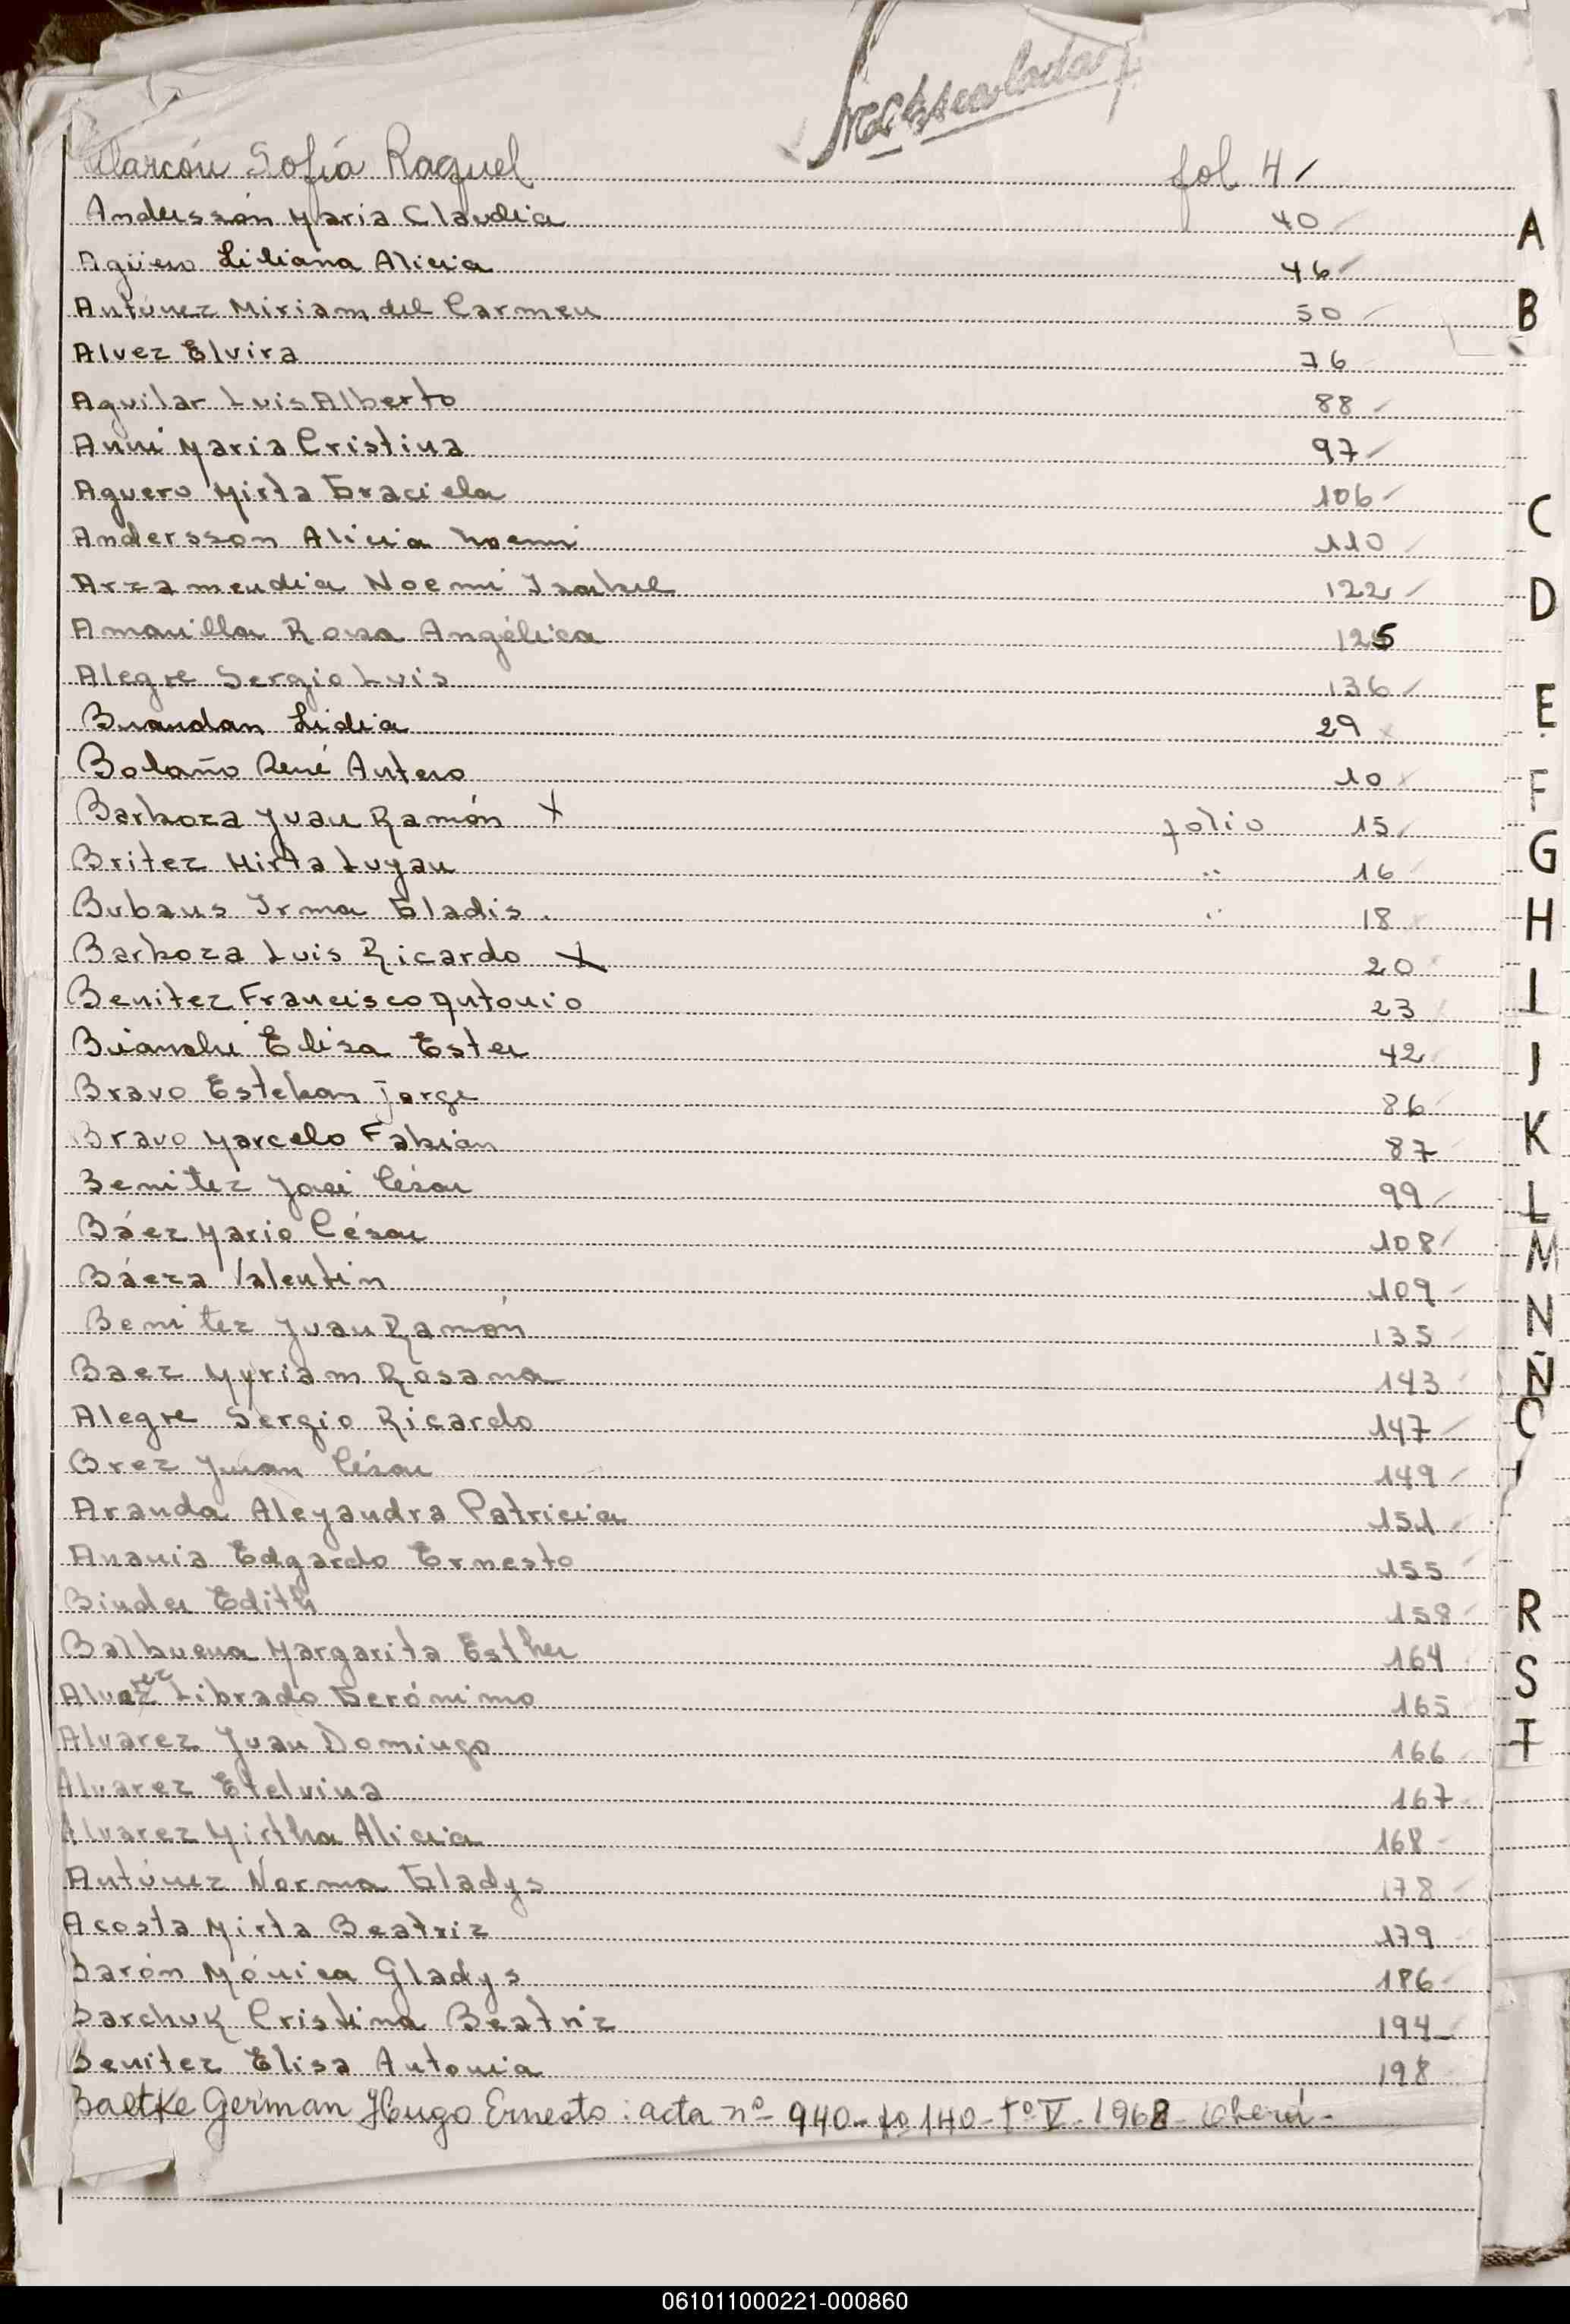 Alarcón Sofía Raquel fol 4
Andersson María Claudia 40
A
Agüero Liliana Alicia 46
Antúnez Miriam del Carmen 50
B
Alvez Elvira 76
Aguilar Luis Alberto 88
Anní María Cristina 97
Aguero Mirta Graciela 106
C
Andersson Alicia Noemí 110
Arzamendia Noemí Isabel 122
D
Amarilla Rosa Angélica 125
Alegre Sergio Luis 136
E
Brandan Lidia 29
Bolaño René Antero 10
F
Barboza Juan Ramón X folio 15
G
Britez Mirta Luján " 16
Bubans Irma Gladis. " 18
H
Barboza Luis Ricardo X 20
Benitez Francisco Antonio 23
I
Bianchi Elisa Ester 42
J
Bravo Esteban Jorge 86
Bravo Marcelo Fabián 87
K
Benitez José César 99
L
Báez Mario César 108
M
Báeza Valentín 109
Benitez Juan Ramón 135
N
Baez Myriam Rosana 143
Ñ
Alegre Sergio Ricardo 147
O
Brez Juan César 149
Aranda Aleyandra Patricia 151
Anania Edgardo Ernesto 155
Binder Edith 158
R
Balbuena Margarita Esther 164
S
Alvarez Librado Gerónimo 165
Alvarez Juan Domingo 166
T
Alvarez Etelvina 167
Alvarez Mirtha Alicia 168
Antúnez Norma Gladys 178
Acosta Mirta Beatriz 179
Barón Mónica Gladys 186
Barchuk Cristina Beatriz 194
Benitez Elisa Antonia 198
Baetke Germán Hugo Ernesto: acta nº 940- fo 140- tº V- 1968- Oberá-
061011000221-000860